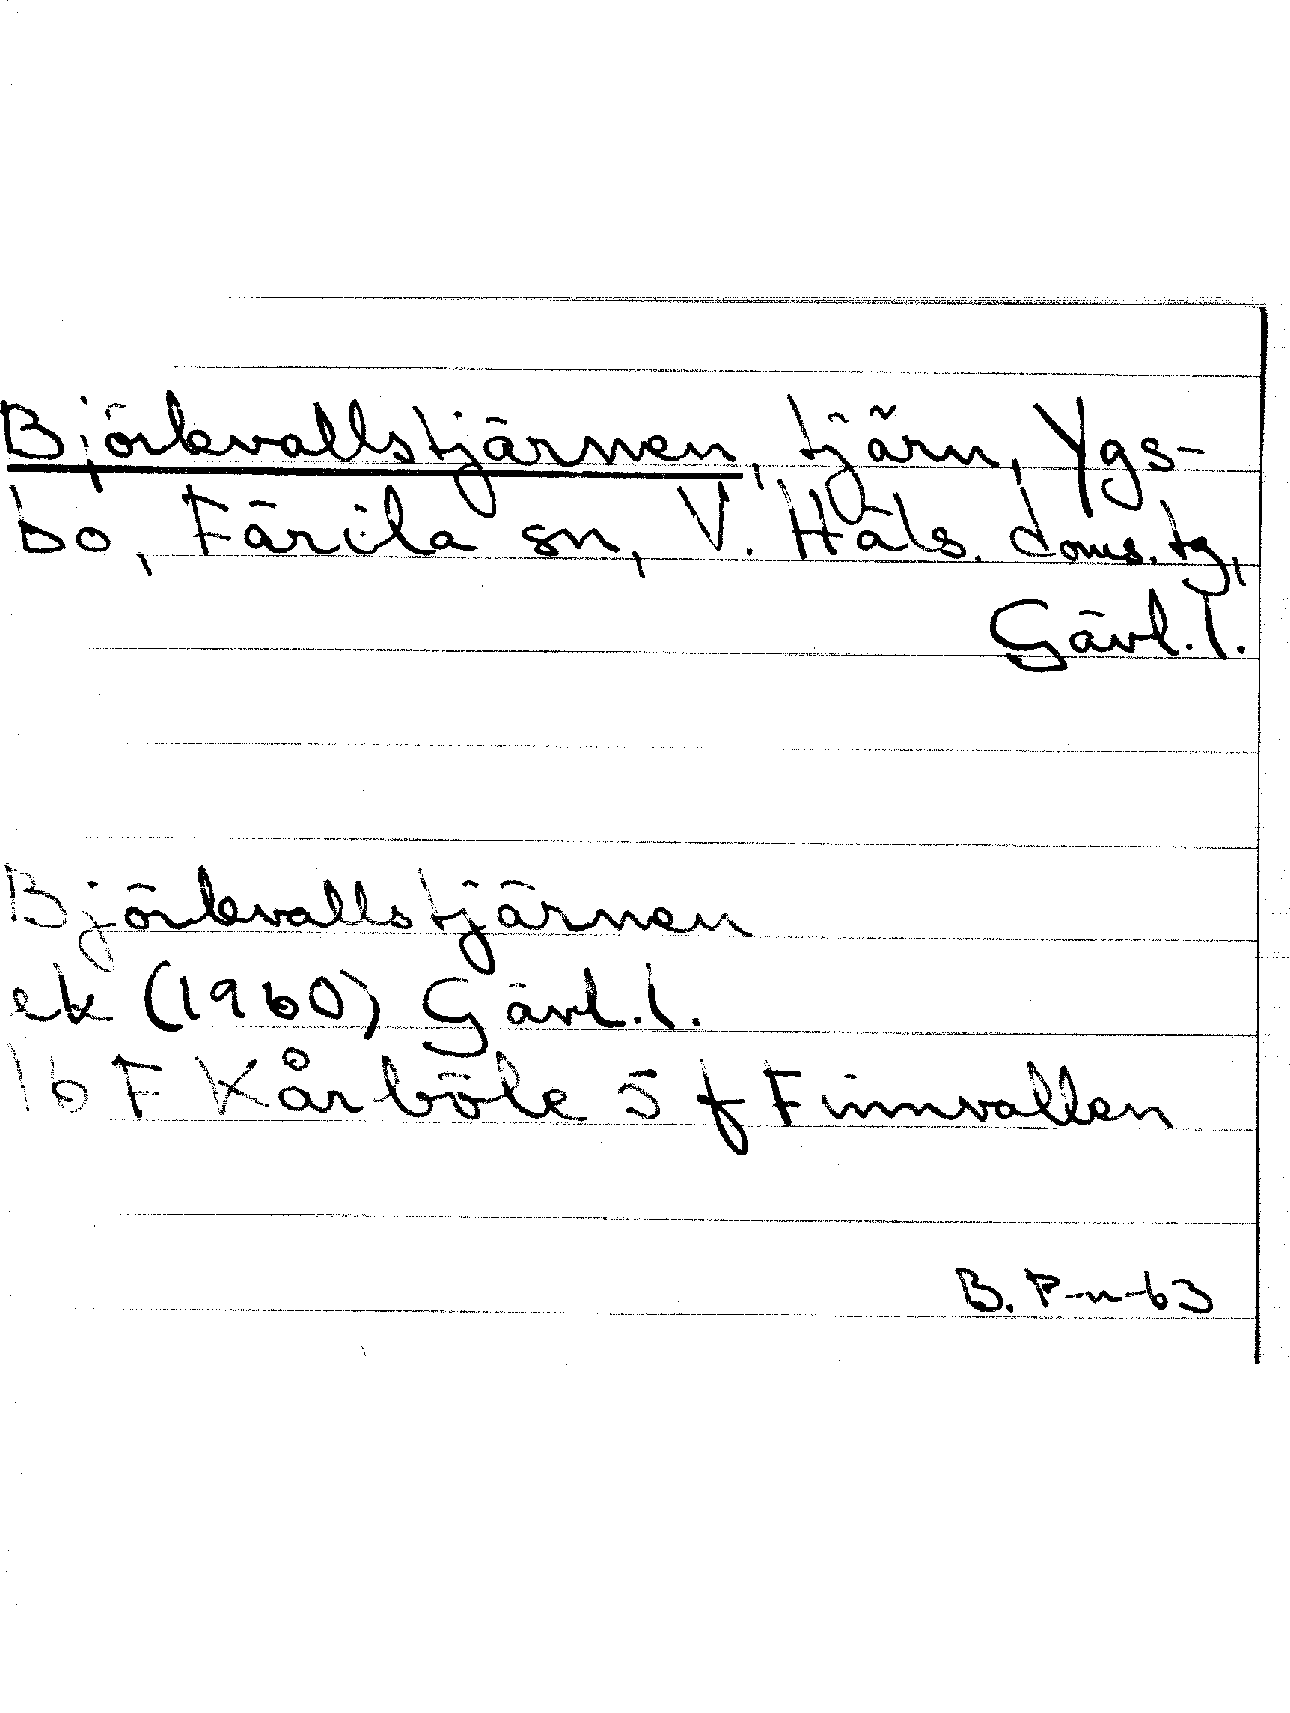 Björkvallstjärnen, tjärn, Ygs-
bo, Färila sn, V. Häls. doms. tg,
Gävl. l.
Björkvallstjärnen
ek (1960) Gävl. l.
16 F Kårböle 5 f Finnvallen
B. P-n-63